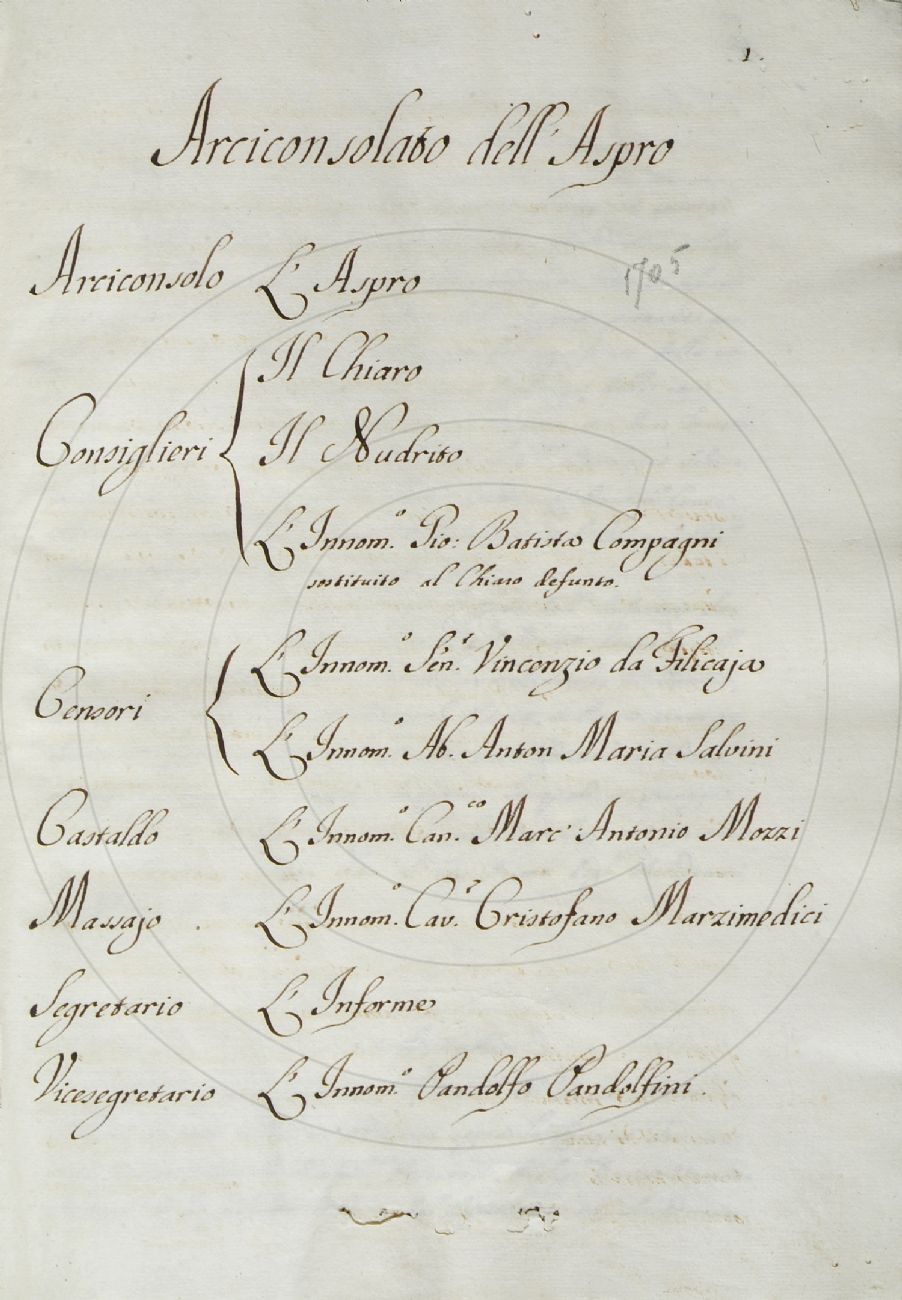 1.
Arciconsolato dell' Aspro
1705
Arciconsolo L' Aspro
Consiglieri Il Chiaro
Il Nudrito
L' Innom.º Gio: Batista Compagni
sostituito al Chiaro defunto.
Censori L' Innom.º Sen.ʳ Vincenzio da Filicaja
L' Innom.º Ab. Anton Maria Salvini
Castaldo L' Innom.º Can.ᶜᵒ Marc' Antonio Mozzi
Massajo L' Innom.º Cav.ʳ Cristofano Marzimedici
Segretario L' Informe
Vicesegretario L' Innom.º Pandolfo Pandolfini.